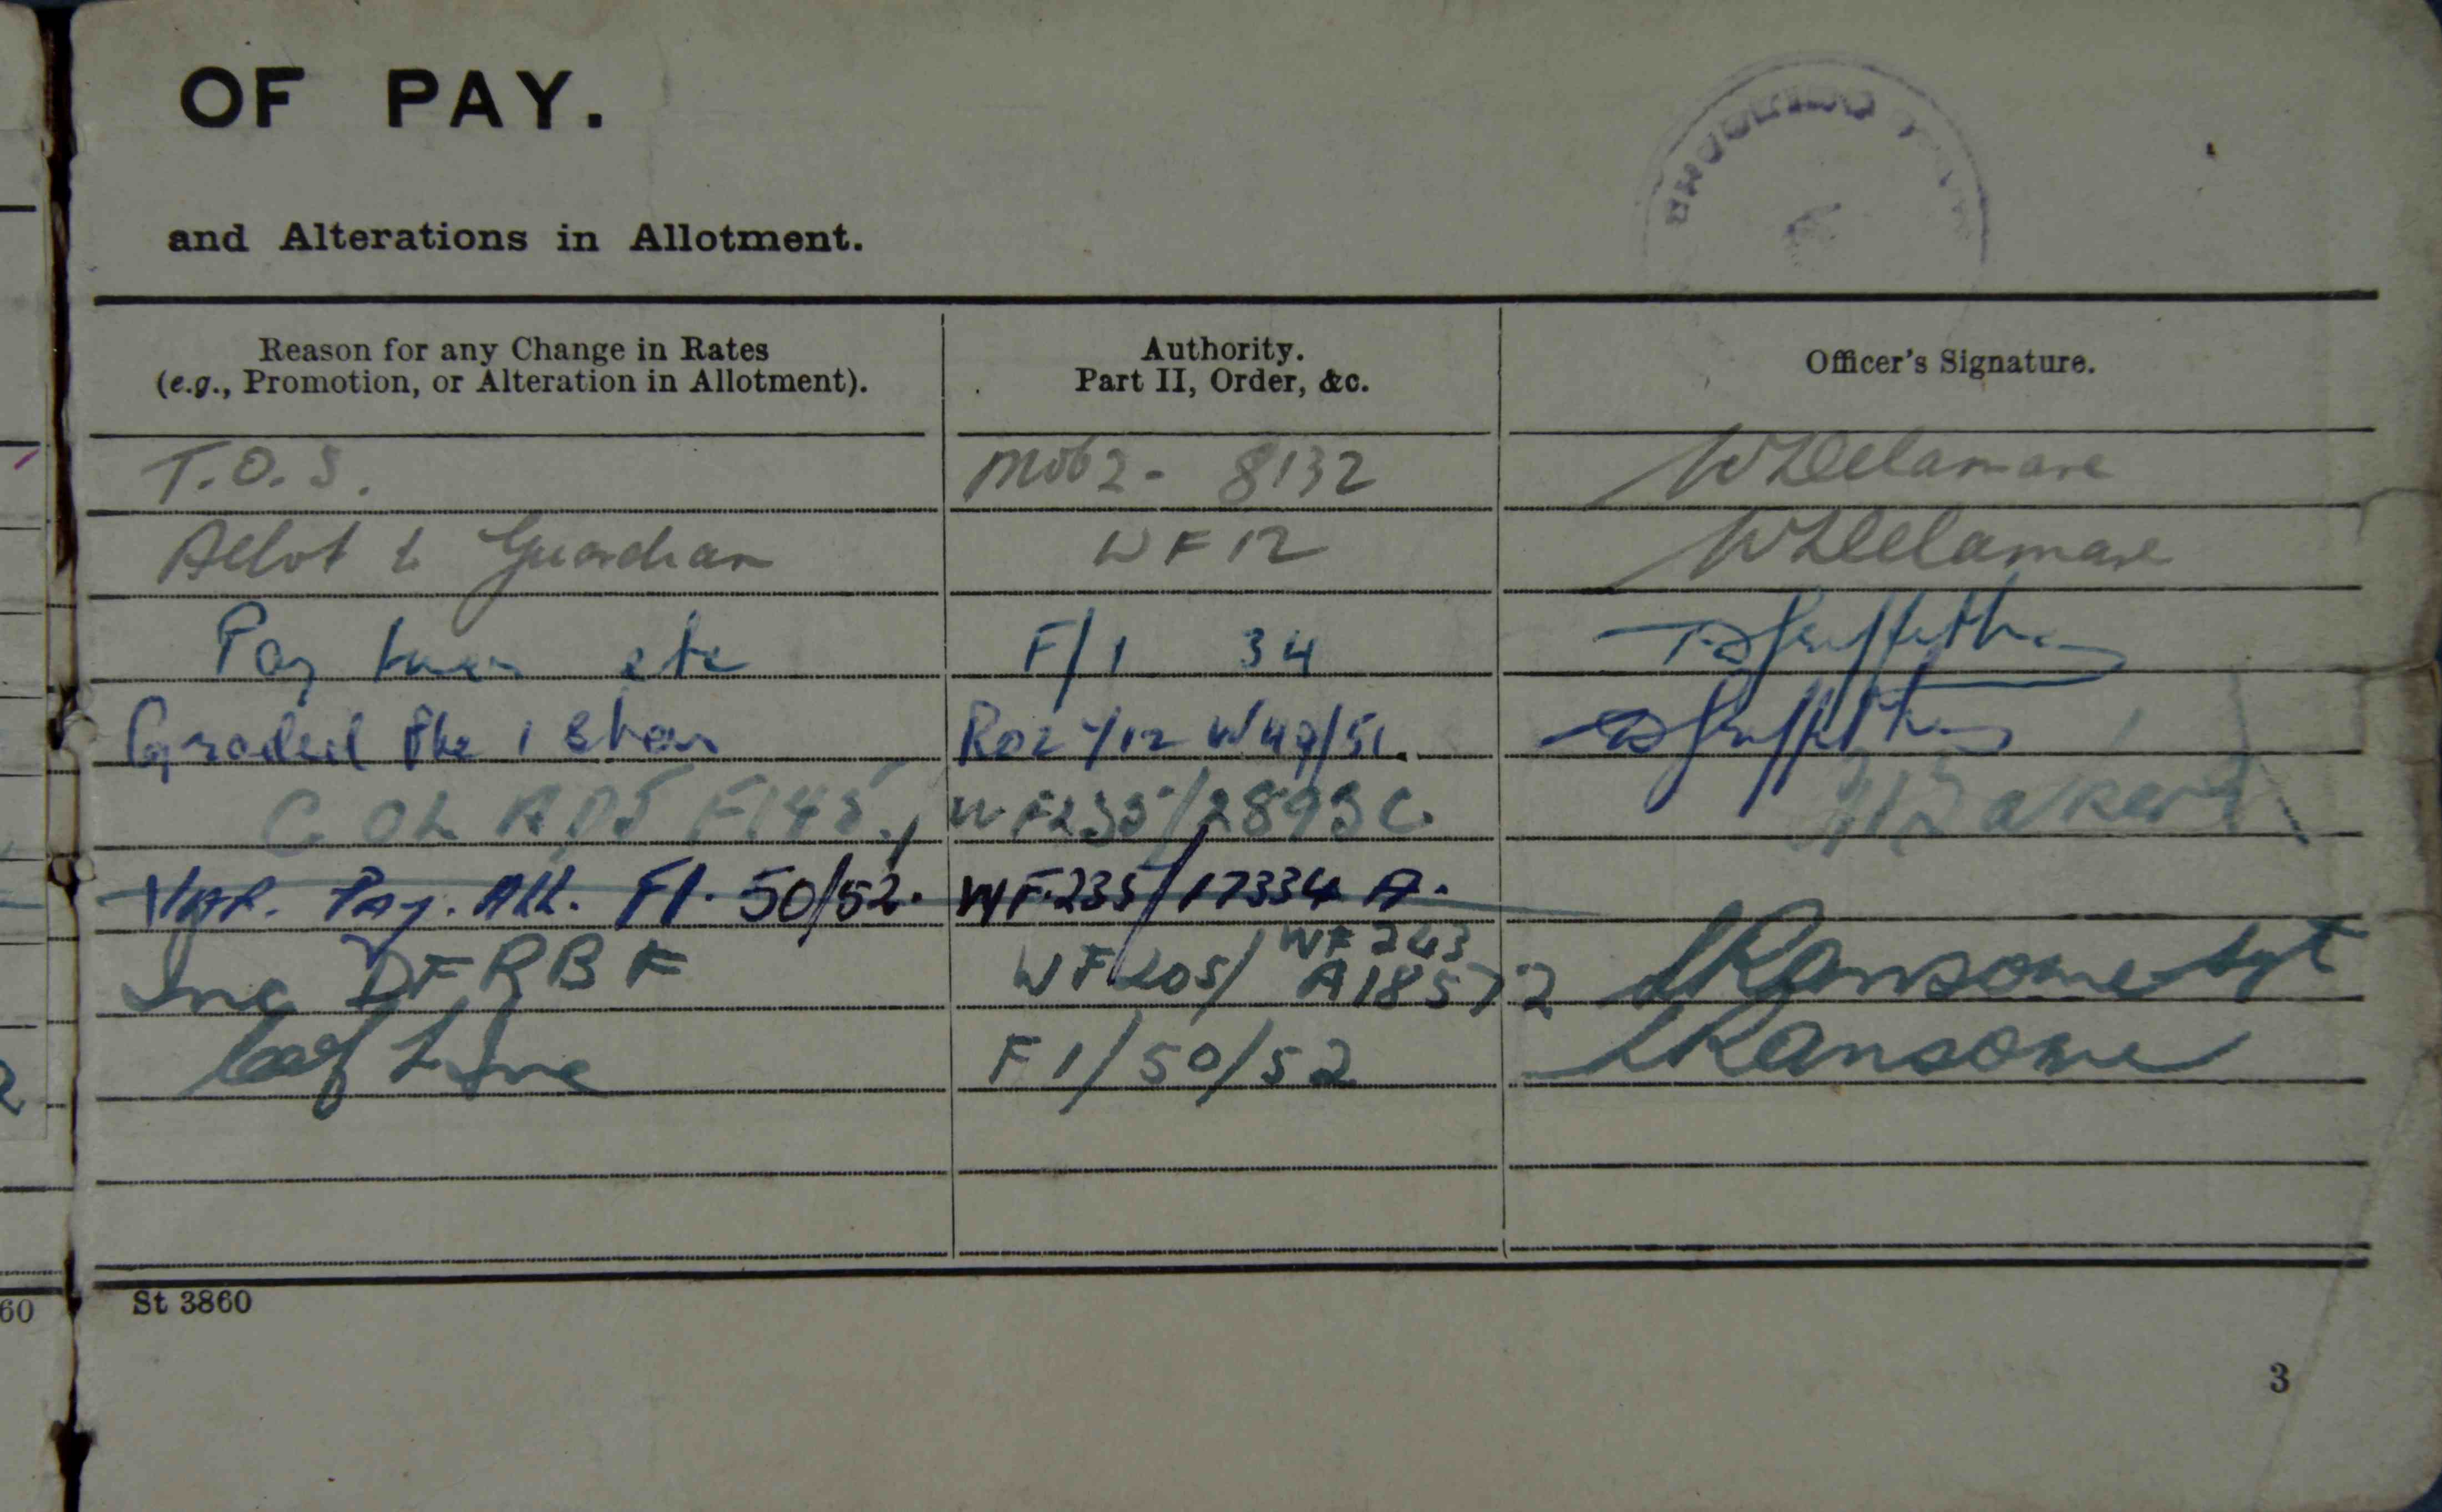 OF PAY.
and Alterations in Allotment.
Reason for any Change in Rates
(e.g., Promotion, or Alteration in Allotment).
Authority.
Part II, Order, &c.
Officer's Signature.
T.O.S. Mob 2 - 8132 WLDelamare
Allot to Guardian WF 12 WLDelamare
Pay etc F/1 34
Graded Pte 1 Star W49/51.
C OL ADJ F145. WF235/2893 C. Baker
Var. Pay. All. F1. 50/52. WF.235/17334 A.
Inc DFRBF WF205/ WF 243 A18572 Ransome Sgt
Inc F1/50/52 Ransome
St 3860
60
3